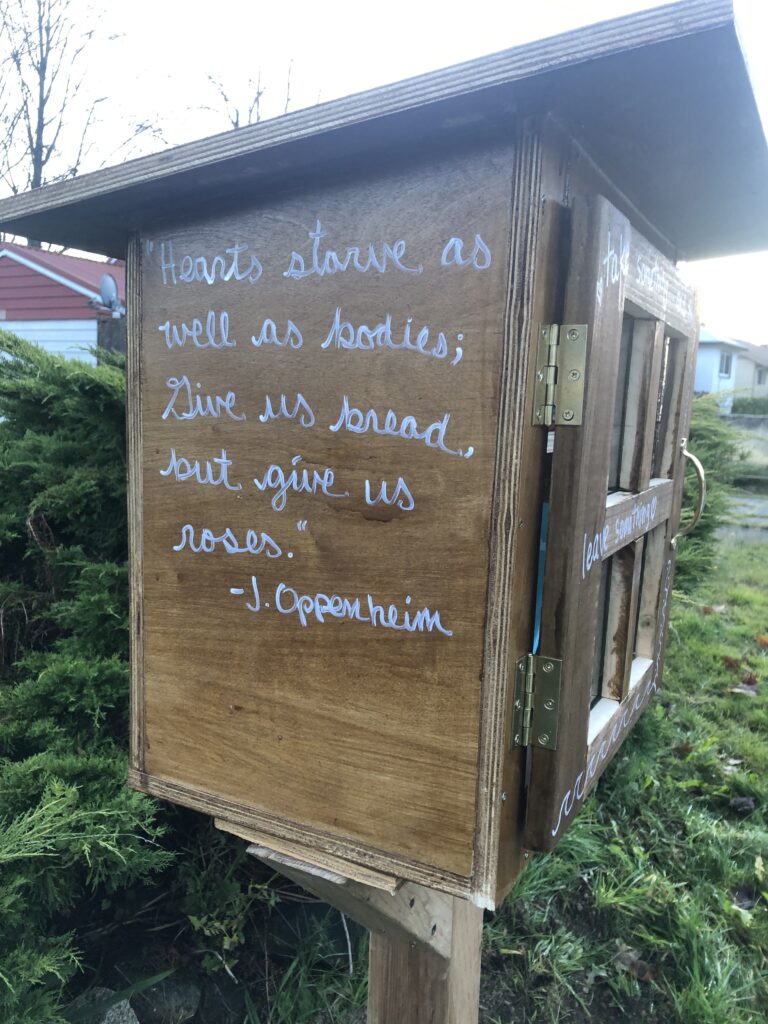 "Hearts starve as
well as bodies;
Give us bread,
but give us
roses."
-J. Oppenheim
"take something
leave something